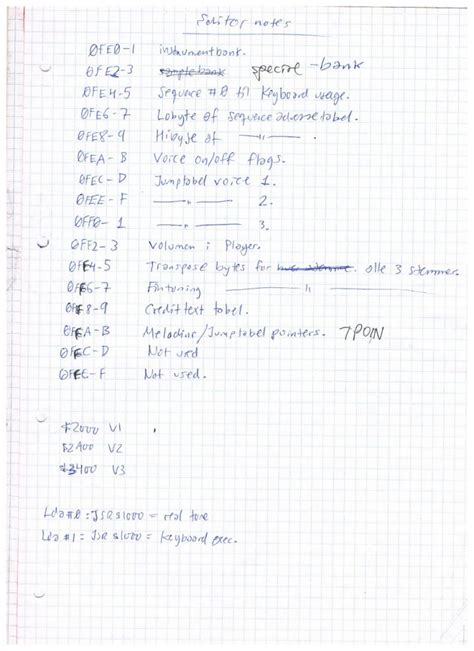 Editor notes
ØFE0-1 instrumentbank.
ØFE2-3 samplebank special -bank
ØFE4-5 Sequence #0 til Keyboard usage.
ØFE6-7 Lobyte of sequence adressetabel.
ØFE8-9 Hibyte of —— " ——.
ØFEA-B Voice on/off flags.
ØFEC-D Jumptabel voice 1.
ØFEE-F —— " —— 2.
ØFF0-1 —— " —— 3.
ØFF2-3 Volumen i Player.
ØFF4-5 Transpose bytes for hver stemme. alle 3 stemmer.
ØFF6-7 Fintuning —— " ——
ØFF8-9 Credit text tabel.
ØFFA-B Melodine/Jumptabel pointers. TPOIN
ØFFC-D Not used
ØFFE-F Not used.
$2000 V1
$2A00 V2
$3400 V3
Lda #0 : JSR $1000 = real tone
Lda #1 : JSR $1000 = Keyboard exec.